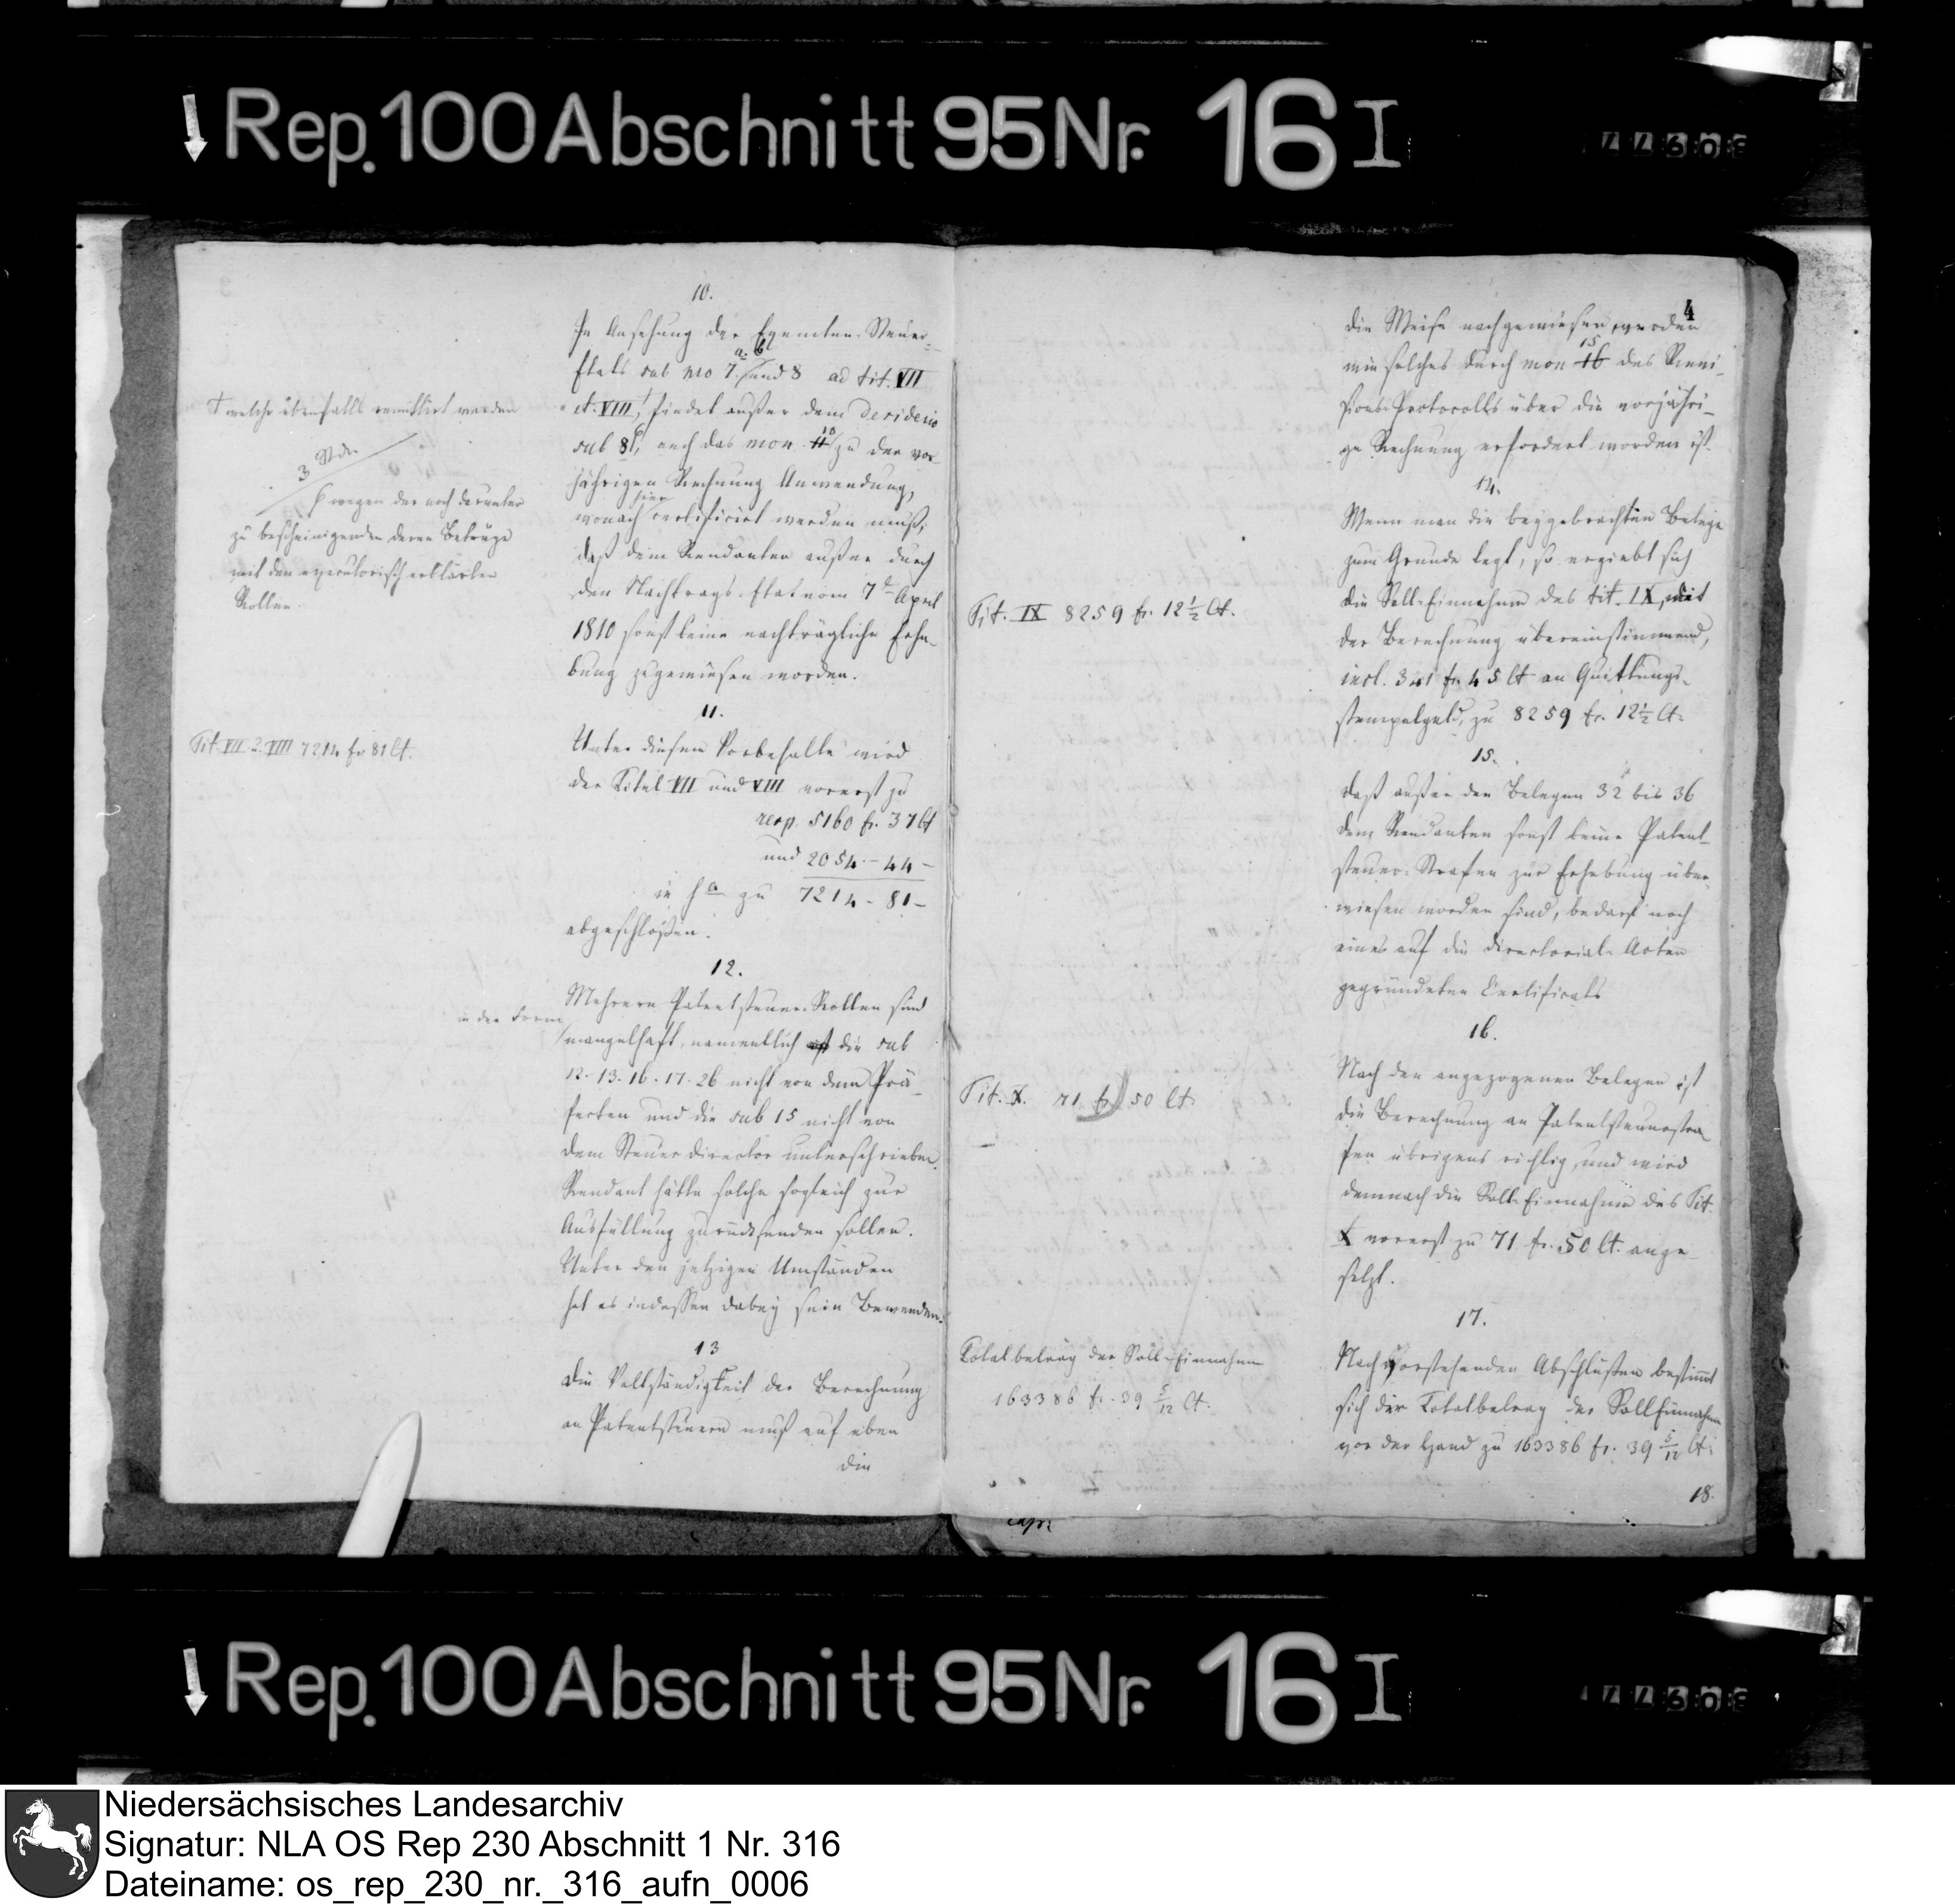 Rep. 100 Abschnitt 95 Nr. 16 I
10.
In Ansehung der Exemten-Steuer-
Etats sub nro 7. a. b. und 8 ad tit. VII
et VIII, findet außer dem desiderio
sub 8, auch das mon. 10 zu der vor
jährigen Rechnung Anwendung,
wonach hier certificirt werden muß,
daß dem Rendanten außer durch
den Nachtrags-Etat vom 7t April
1810 sonst keine nachträgliche Erhe-
bung zugewiesen worden.
† welche ebenfalls remittirt werden
wegen der noch darunter
zu bescheinigenden deren Beträge
mit den executorisch erklärten
Rollen
11.
Tit. VII & VIII 7214 fr 81 Ct.
Unter diesem Vorbehalte wird
der Titel VII und VIII vorerst zu
resp. 5160 fr. 37 Ct
und 2054 - 44 -
in Sa zu 7214 - 81 -
abgeschloßen.
12.
Mehrere Patentsteuer-Rollen sind
in der Form
mangelhaft, namentlich die sub
12. 13. 16. 17. 26 nicht von dem Prä-
fecten und die sub 15 nicht von
dem Steuerdirector unterschrieben.
Rendant hätte solche sogleich zur
Ausfüllung zurücksenden sollen.
Unter den jetzigen Umständen
hat es indessen dabey sein Bewenden.
13
Die Vollständigkeit der Berechnung
an Patentsteuern muß auf eben
die
4
die Weise nachgewiesen werden
wie solches durch mon 15 des Revi-
sions-Protocolls über die vorjähri-
ge Rechnung erfordert worden ist.
14.
Wenn man die beygebrachten Belege
zum Grunde legt, so ergiebt sich
Tit. IX 8259 fr. 12 1/2 Ct.
die Soll-Einnahme des tit. IX, mit
der Berechnung übereinstimmend,
incl. 341 fr. 45 Ct an Quittungs-
stempelgeld, zu 8259 fr. 12 1/2 Ct.
15.
Daß außer den Belegen 32 bis 36
dem Rendanten sonst keine Patent-
steuer-Strafen zur Erhebung über-
wiesen worden sind, bedarf noch
eines auf die Directorial-Acten
gegründeten Certificats
16.
Nach den angezogenen Belegen ist
Tit. X. 71 fr 50 Ct.
die Berechnung an Patentsteuerstra
fen übrigens richtig, und wird
demnach die Soll-Einnahme des Tit.
X vorerst zu 71 fr. 50 Ct. ange-
setzt.
17.
Totalbetrag der Soll-Einnahme
163386 fr. 39 5/12 Ct.
Nach vorstehenden Abschlüßen bestimmt
sich der Totalbetrag der Soll Einnahme
vor der Hand zu 163386 fr. 39 5/12 Ct.
18.
Rep. 100 Abschnitt 95 Nr. 16 I
Niedersächsisches Landesarchiv
Signatur: NLA OS Rep 230 Abschnitt 1 Nr. 316
Dateiname: os_rep_230_nr._316_aufn_0006